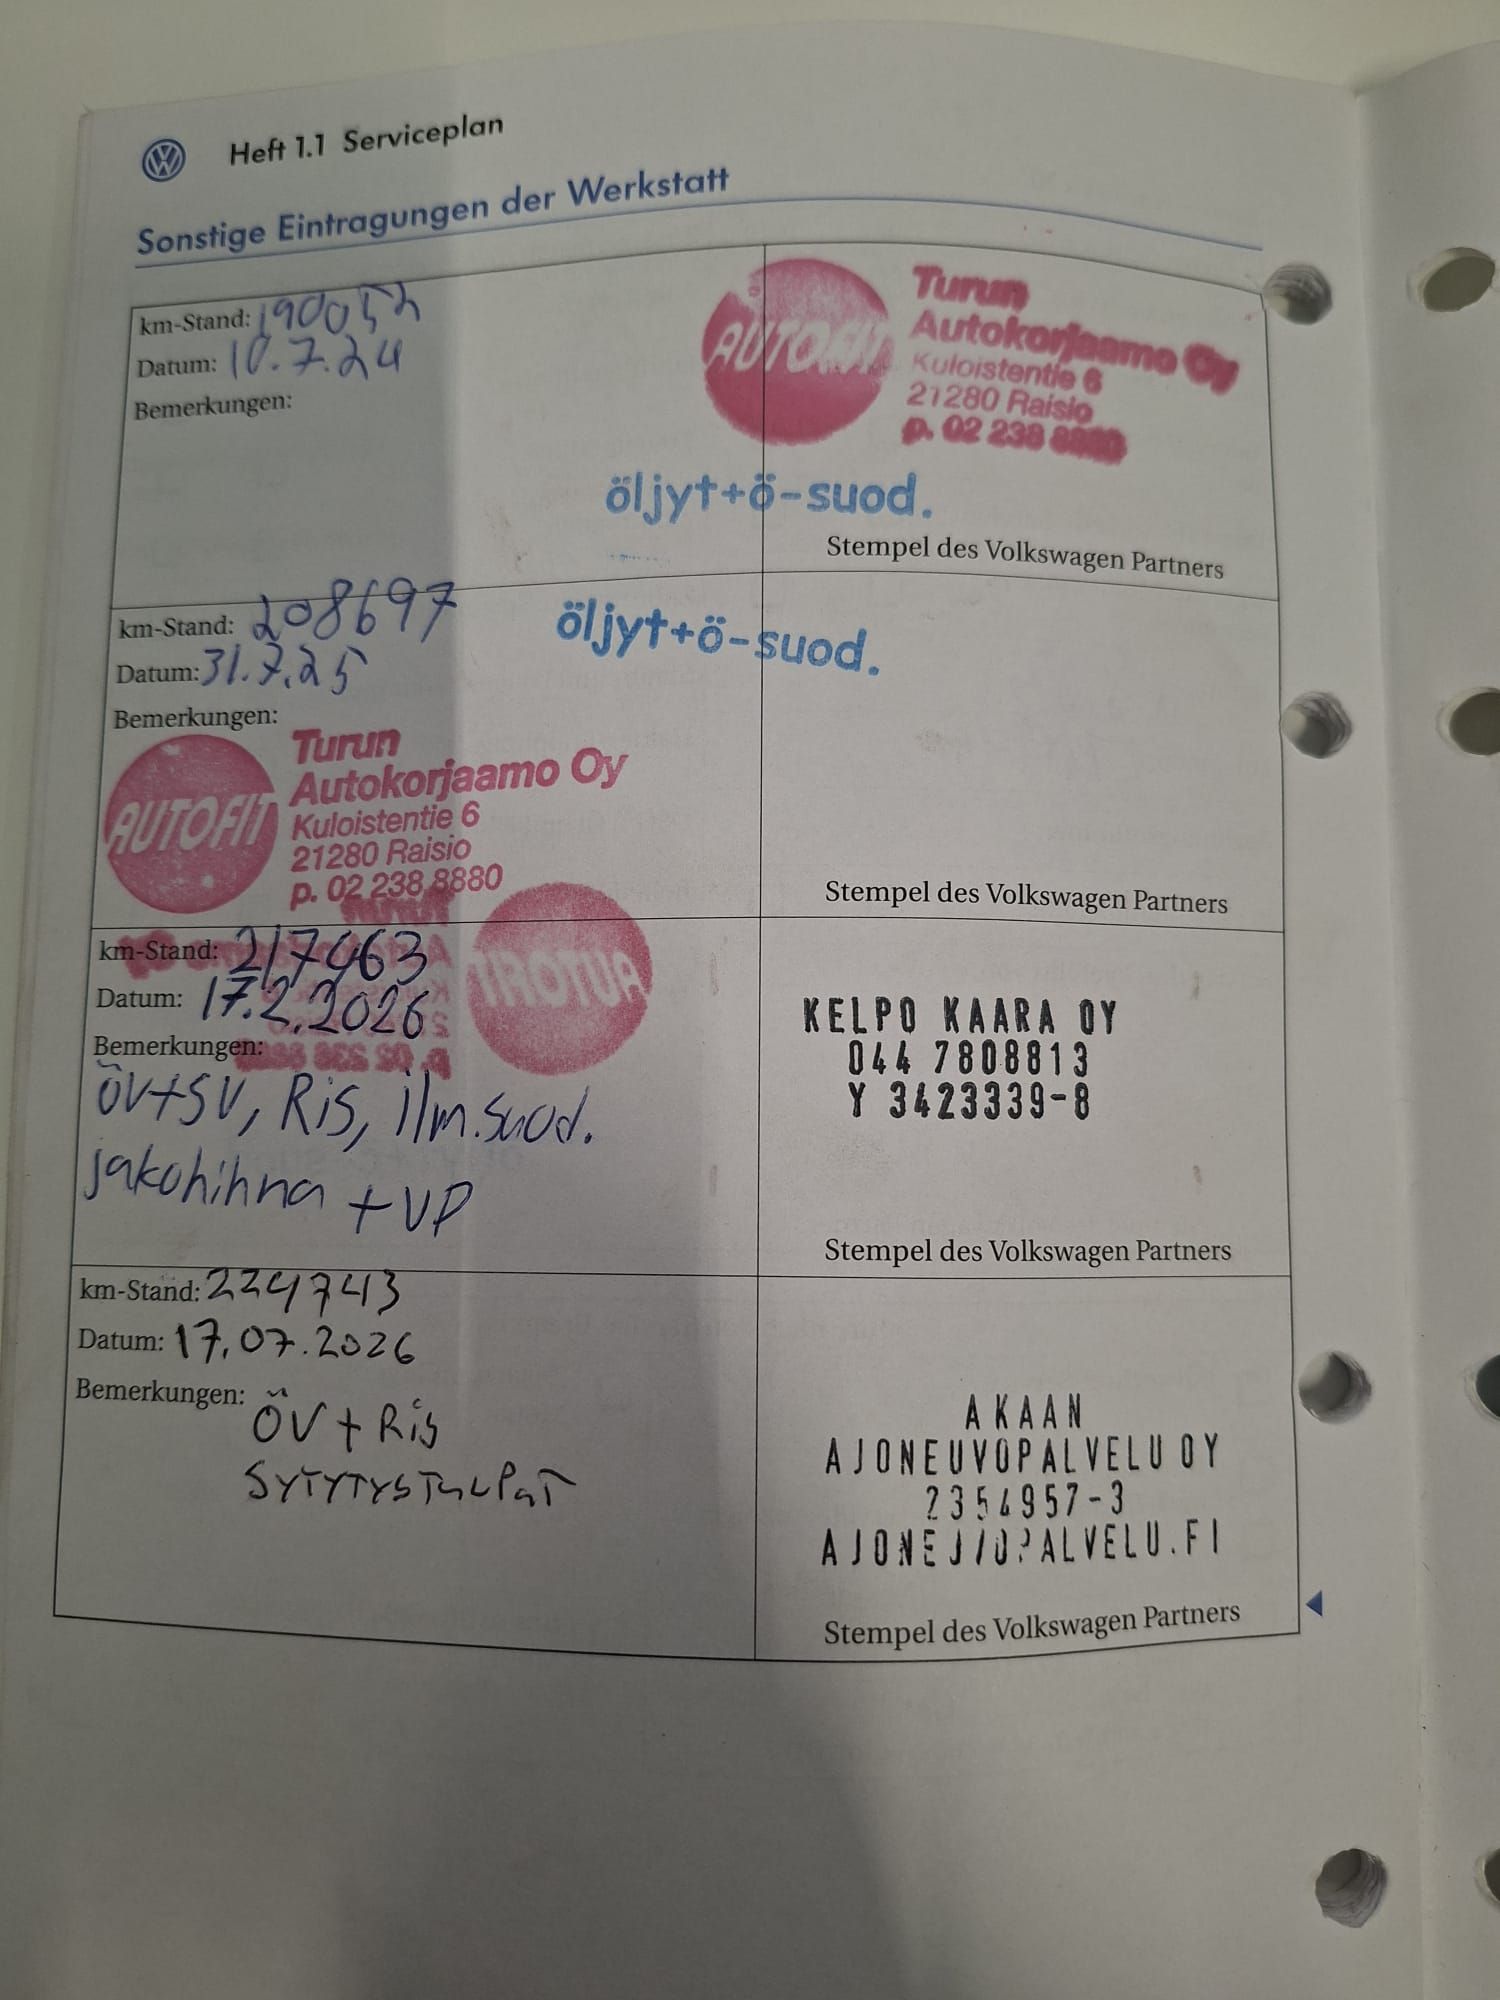 Heft 1.1 Serviceplan
Sonstige Eintragungen der Werkstatt
km-Stand:
Datum: 10.7.24
Bemerkungen:
AUTOFIT
Turun
Autokorjaamo Oy
Kuloistentie 6
21280 Raisio
p. 02 238 8880
öljyt+ö-suod.
Stempel des Volkswagen Partners
km-Stand: 208697
Datum: 31.7.25
Bemerkungen:
öljyt+ö-suod.
AUTOFIT
Turun
Autokorjaamo Oy
Kuloistentie 6
21280 Raisio
p. 02 238 8880
Stempel des Volkswagen Partners
km-Stand: 217463
Datum: 17.2.2026
Bemerkungen:
ÖV+SV, Ris, ilm.suod.
jakohihna + VP
KELPO KAARA OY
044 7808813
Y 3423339-8
Stempel des Volkswagen Partners
km-Stand: 224743
Datum: 17.07.2026
Bemerkungen:
ÖV + Ris
SYTYTYSTULPAT
AKAAN
AJONEUVOPALVELU OY
2354957-3
AJONEUVOPALVELU.FI
Stempel des Volkswagen Partners